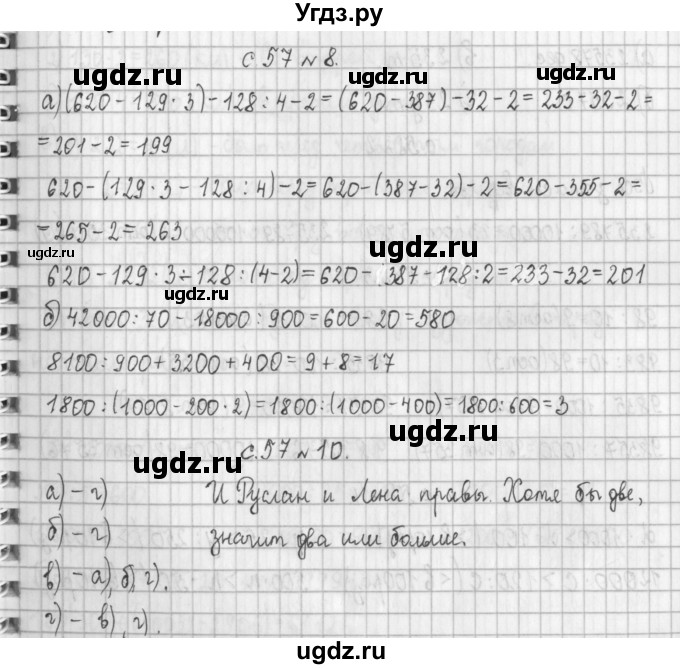 Угдз.ру
с 57 № 8.
ugdz.ru ugdz.ru
а) (620 - 129 · 3) - 128 : 4 - 2 = (620 - 387) - 32 - 2 = 233 - 32 - 2 =
= 201 - 2 = 199
620 - (129 · 3 - 128 : 4) - 2 = 620 - (387 - 32) - 2 = 620 - 355 - 2 =
= 265 - 2 = 263
ugdz.ru ugdz.ru
620 - 129 · 3 - 128 : (4 - 2) = 620 - 387 - 128 : 2 = 233 - 32 = 201
ugdz.ru
б) 42000 : 70 - 18000 : 900 = 600 - 20 = 580
8100 : 900 + 3200 + 400 = 9 + 8 = 17
1800 : (1000 - 200 · 2) = 1800 : (1000 - 400) = 1800 : 600 = 3
ugdz.ru ugdz.ru
с. 57 № 10.
а) - г) И Руслан и Лена правы. Хотя бы две,
б) - г) значит два или больше.
в) - а), б), г).
г) - в), г).
ugdz.ru